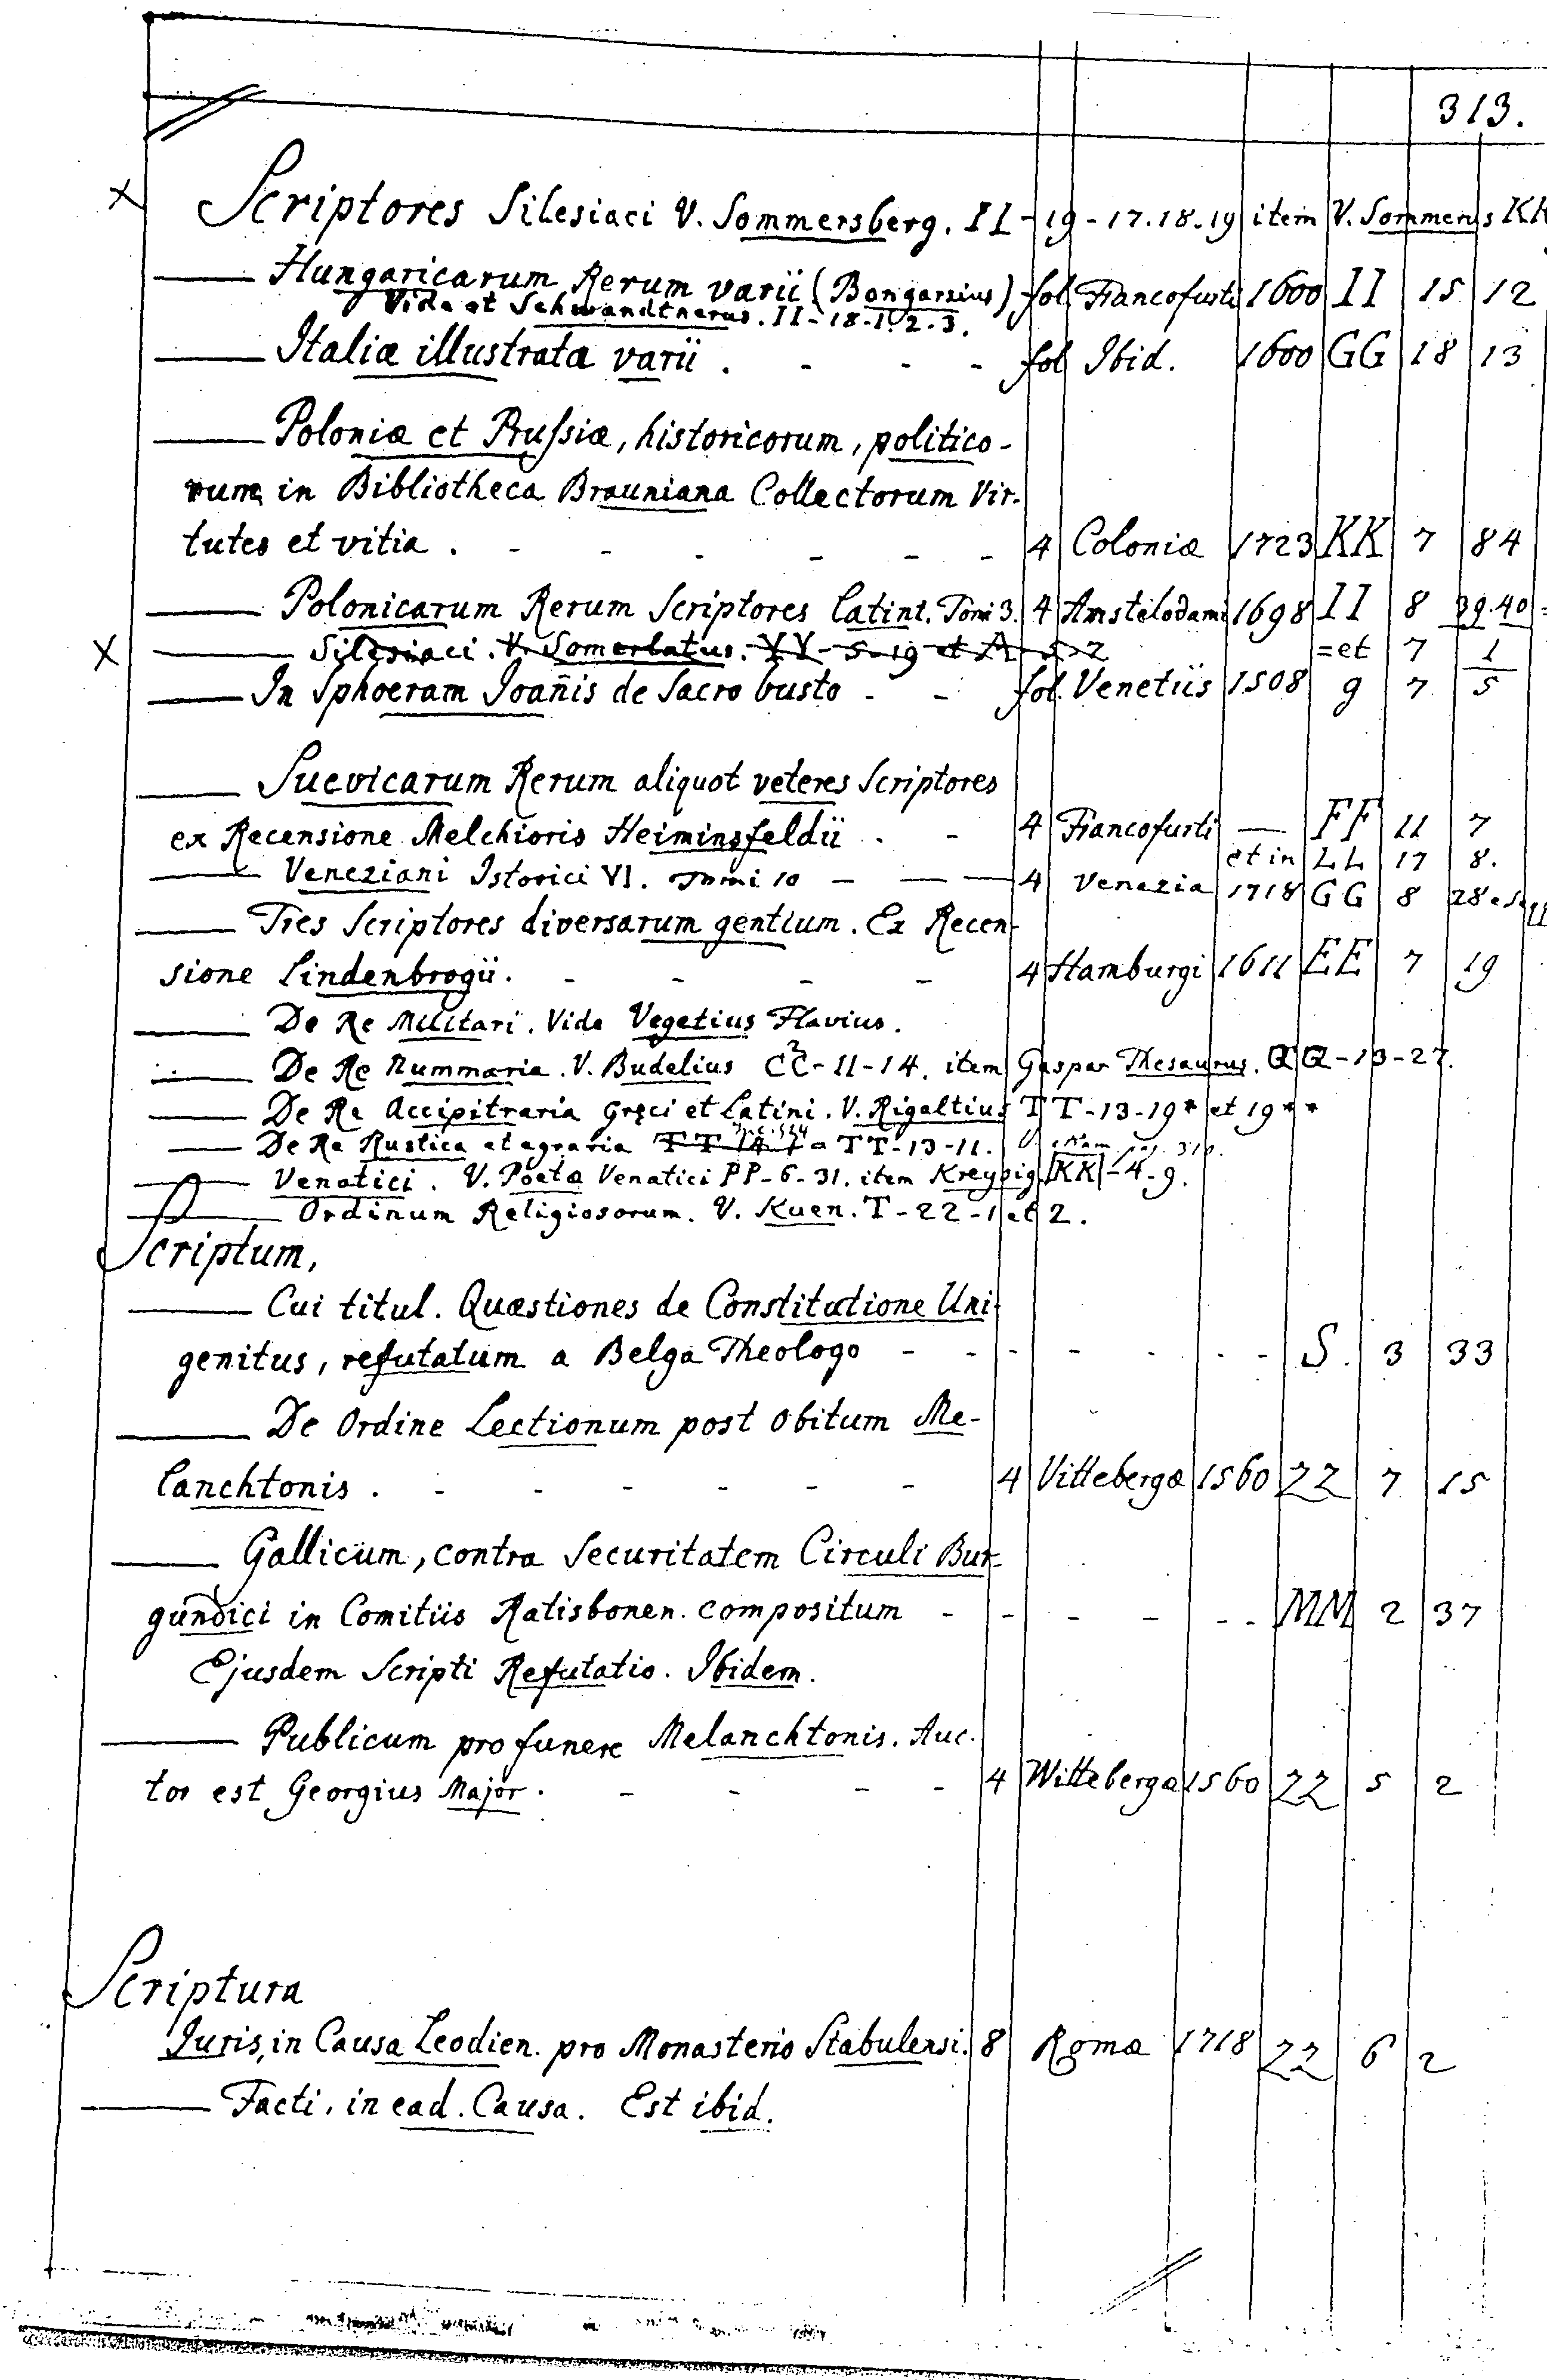 313.
X Scriptores Silesiaci V. Sommersberg. II - 19 - 17.18.19 item V. Sommers KK
—— Hungaricarum Rerum varii (Bongarsius) fol Francofurti 1600 II 15 12
Vide et Schwandtnerus. II-18-1.2.3.
—— Italiæ illustratæ varii . - - - fol Ibid. 1600 GG 18 13
—— Poloniæ et Prussiæ, historicorum, politico-
rum, in Bibliotheca Brauniana Collectorum Vir-
tutes et vitia . - - - - - - 4 Coloniæ 1723 KK 7 84
—— Polonicarum Rerum Scriptores Latini. Tomi 3. 4 Amstelodami 1698 II 8 39.40 =
X —— Silesiaci. V. Somerlatus. YY-5-19 et =et 7 1
—— In Sphoeram Joañis de Sacro busto - - fol. Venetiis 1508 g 7 5
—— Suevicarum Rerum aliquot veteres Scriptores
ex Recensione Melchioris Heiminsfeldii . - 4 Francofurti — FF 11 7
et in LL 17 8.
—— Veneziani Istorici VI. Tomi 10 — — — 4 Venezia 1718 GG 8 28
—— Tres Scriptores diversarum gentium. Ex Recen-
sione Lindenbrogii. - - - - 4 Hamburgi 1611 EE 7 19
—— De Re Militari. Vide Vegetius Flavius.
—— De Re Nummaria. V. Budelius CC-11-14. item Gaspar Thesaurus. QQ-13-27.
—— De Re Accipitraria Gręci et Latini. V. Rigaltius TT-13-19* et 19**
—— De Re Rustica et agraria TT-13-11.
—— Venatici. V. Poetæ Venatici PP-6-31. item Kreysig. KK-4-9.
—— Ordinum Religiosorum. V. Kuen. T-22-1 et 2.
Scriptum,
—— Cui titul. Quæstiones de Constitutione Uni-
genitus, refutatum a Belga Theologo - - - - - - - S. 3 33
—— De Ordine Lectionum post obitum Me-
lanchtonis . - - - - - - 4 Vittebergæ 1560 ZZ 7 15
—— Gallicum, contra Securitatem Circuli Bur-
gundici in Comitiis Ratisbonen. compositum - - - - - - MM 2 37
Ejusdem Scripti Refutatio. Ibidem.
—— Publicum pro funere Melanchtonis. Auc-
tor est Georgius Major . - - - - 4 Wittebergæ 1560 ZZ 5 2
Scriptura
Juris, in Causa Leodien. pro Monasterio Stabulensi. 8 Romæ 1718 ZZ 6 2
—— Facti, in ead. Causa. Est ibid.